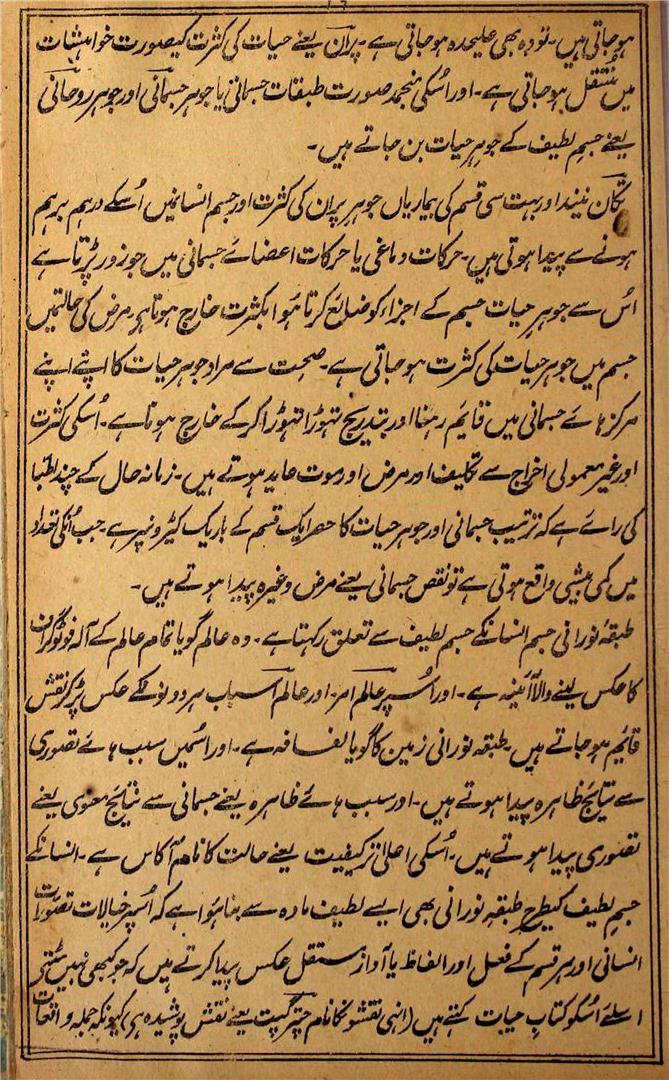 ہوجاتی ہیں۔ تو وہ بھی علیحدہ ہوجاتی ہے۔ پران یعنے حیات کی کثرت کیصورت خواہشات
میں منتقل ہوجاتی ہے۔ اور اُسکی منجمد صورت طبقات جسمانی یا جوہر جسمانی اور جوہر روحانی
یعنے جسم لطیف کے جوہر حیات بن جاتے ہیں۔
تکان نیند اور بہت سی قسم کی بیماریاں جوہر پران کی کثرت اور جسم انسانمیں اُسکے درہم برہم
ہونے سے پیدا ہوتی ہیں۔ حرکات دماغی یا حرکات اعضائے جسمانی میں جو زور پڑتا ہے
اُس سے جوہر حیات جسم کے اجزاء کو ضائع کرتا ہوا بکثرت خارج ہوتا ہے مرض کی حالتمیں
جسم میں جوہر حیات کی کثرت ہوجاتی ہے۔ صحت سے مراد جوہر حیات کا اپنے اپنے
مرکز ہائے جسمانی میں قایم رہنا اور بتدریج تہوڑا تہوڑا کرکے خارج ہوتا ہے۔ اُسکی کثرت
اور غیر معمولی اخراج سے تکلیف اور مرض اور موت عاید ہوتے ہیں۔ زمانہ حال کے چند اطبا
کی رائے ہے کہ ترتیب جسمانی اور جوہر حیات کا حصر ایک قسم کے باریک کیڑونپر ہے۔ جب اُنکی تعداد
میں کمی بیشی واقع ہوتی ہے تو نقص جسمانی یعنے مرض وغیرہ پیدا ہوتے ہیں۔
طبقہ نورانی جسم انسانکے جسم لطیف سے تعلق رکہتا ہے۔ وہ عالم گویا تمام عالم کے آلہ فوٹوگران
کا عکس لینے والا آئینہ ہے۔ اور اُسپر عالم امر اور عالم اسباب ہر دونکے عکس پڑکر نقش
قایم ہوجاتے ہیں۔ طبقہ نورانی زمین کا گویا لفافہ ہے۔ اور اسمیں سبب ہائے تصوری
سے نتایج ظاہرہ پیدا ہوتے ہیں۔ اور سبب ہائے ظاہرہ یعنے جسمانی سے نتایج معنوی یعنے
تصوری پیدا ہوتے ہیں۔ اُسکی اعلیٰ تر کیفیت یعنے حالت کا نام آکاس ہے۔ انسانکے
جسم لطیف کیطرح طبقہ نورانی بھی ایسے لطیف مادہ سے بنا ہوا ہے کہ اُسپر خیالات تصورات
انسانی اور ہر قسم کے فعل اور الفاظ یا آواز مستقل عکس پیدا کرتے ہیں کہ جو کبھی نہیں مٹتے
اسلئے اُسکو کتاب حیات کہتے ہیں (انہی نقشونکا نام چترگپت یعنے نقش پوشیدہ ہے) کیونکہ جملہ واقعات